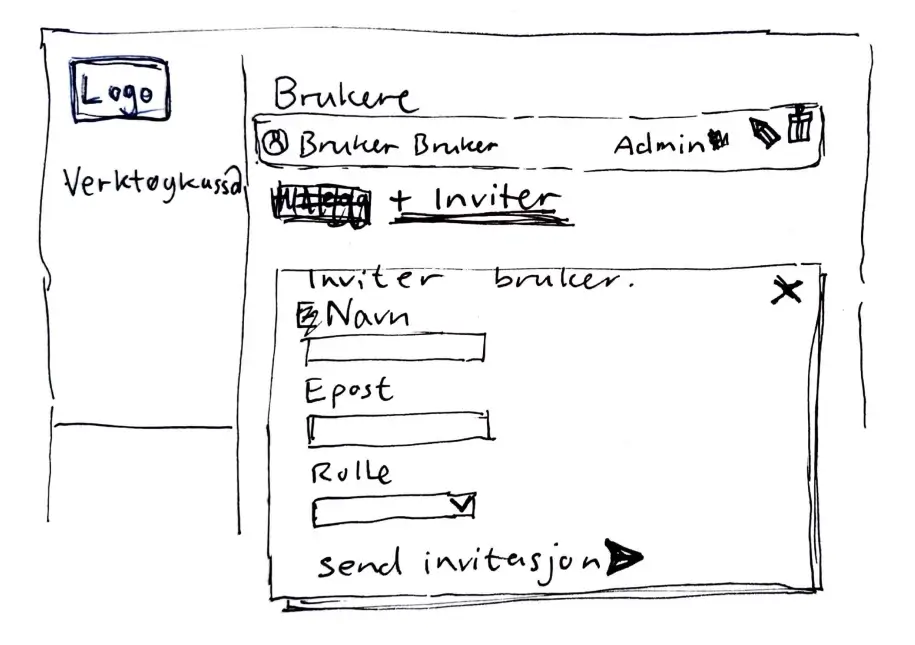 Logo
Verktøykassa
Brukere
Bruker Bruker Admin
+ Inviter
Inviter bruker.
Navn
Epost
Rolle
send invitasjon